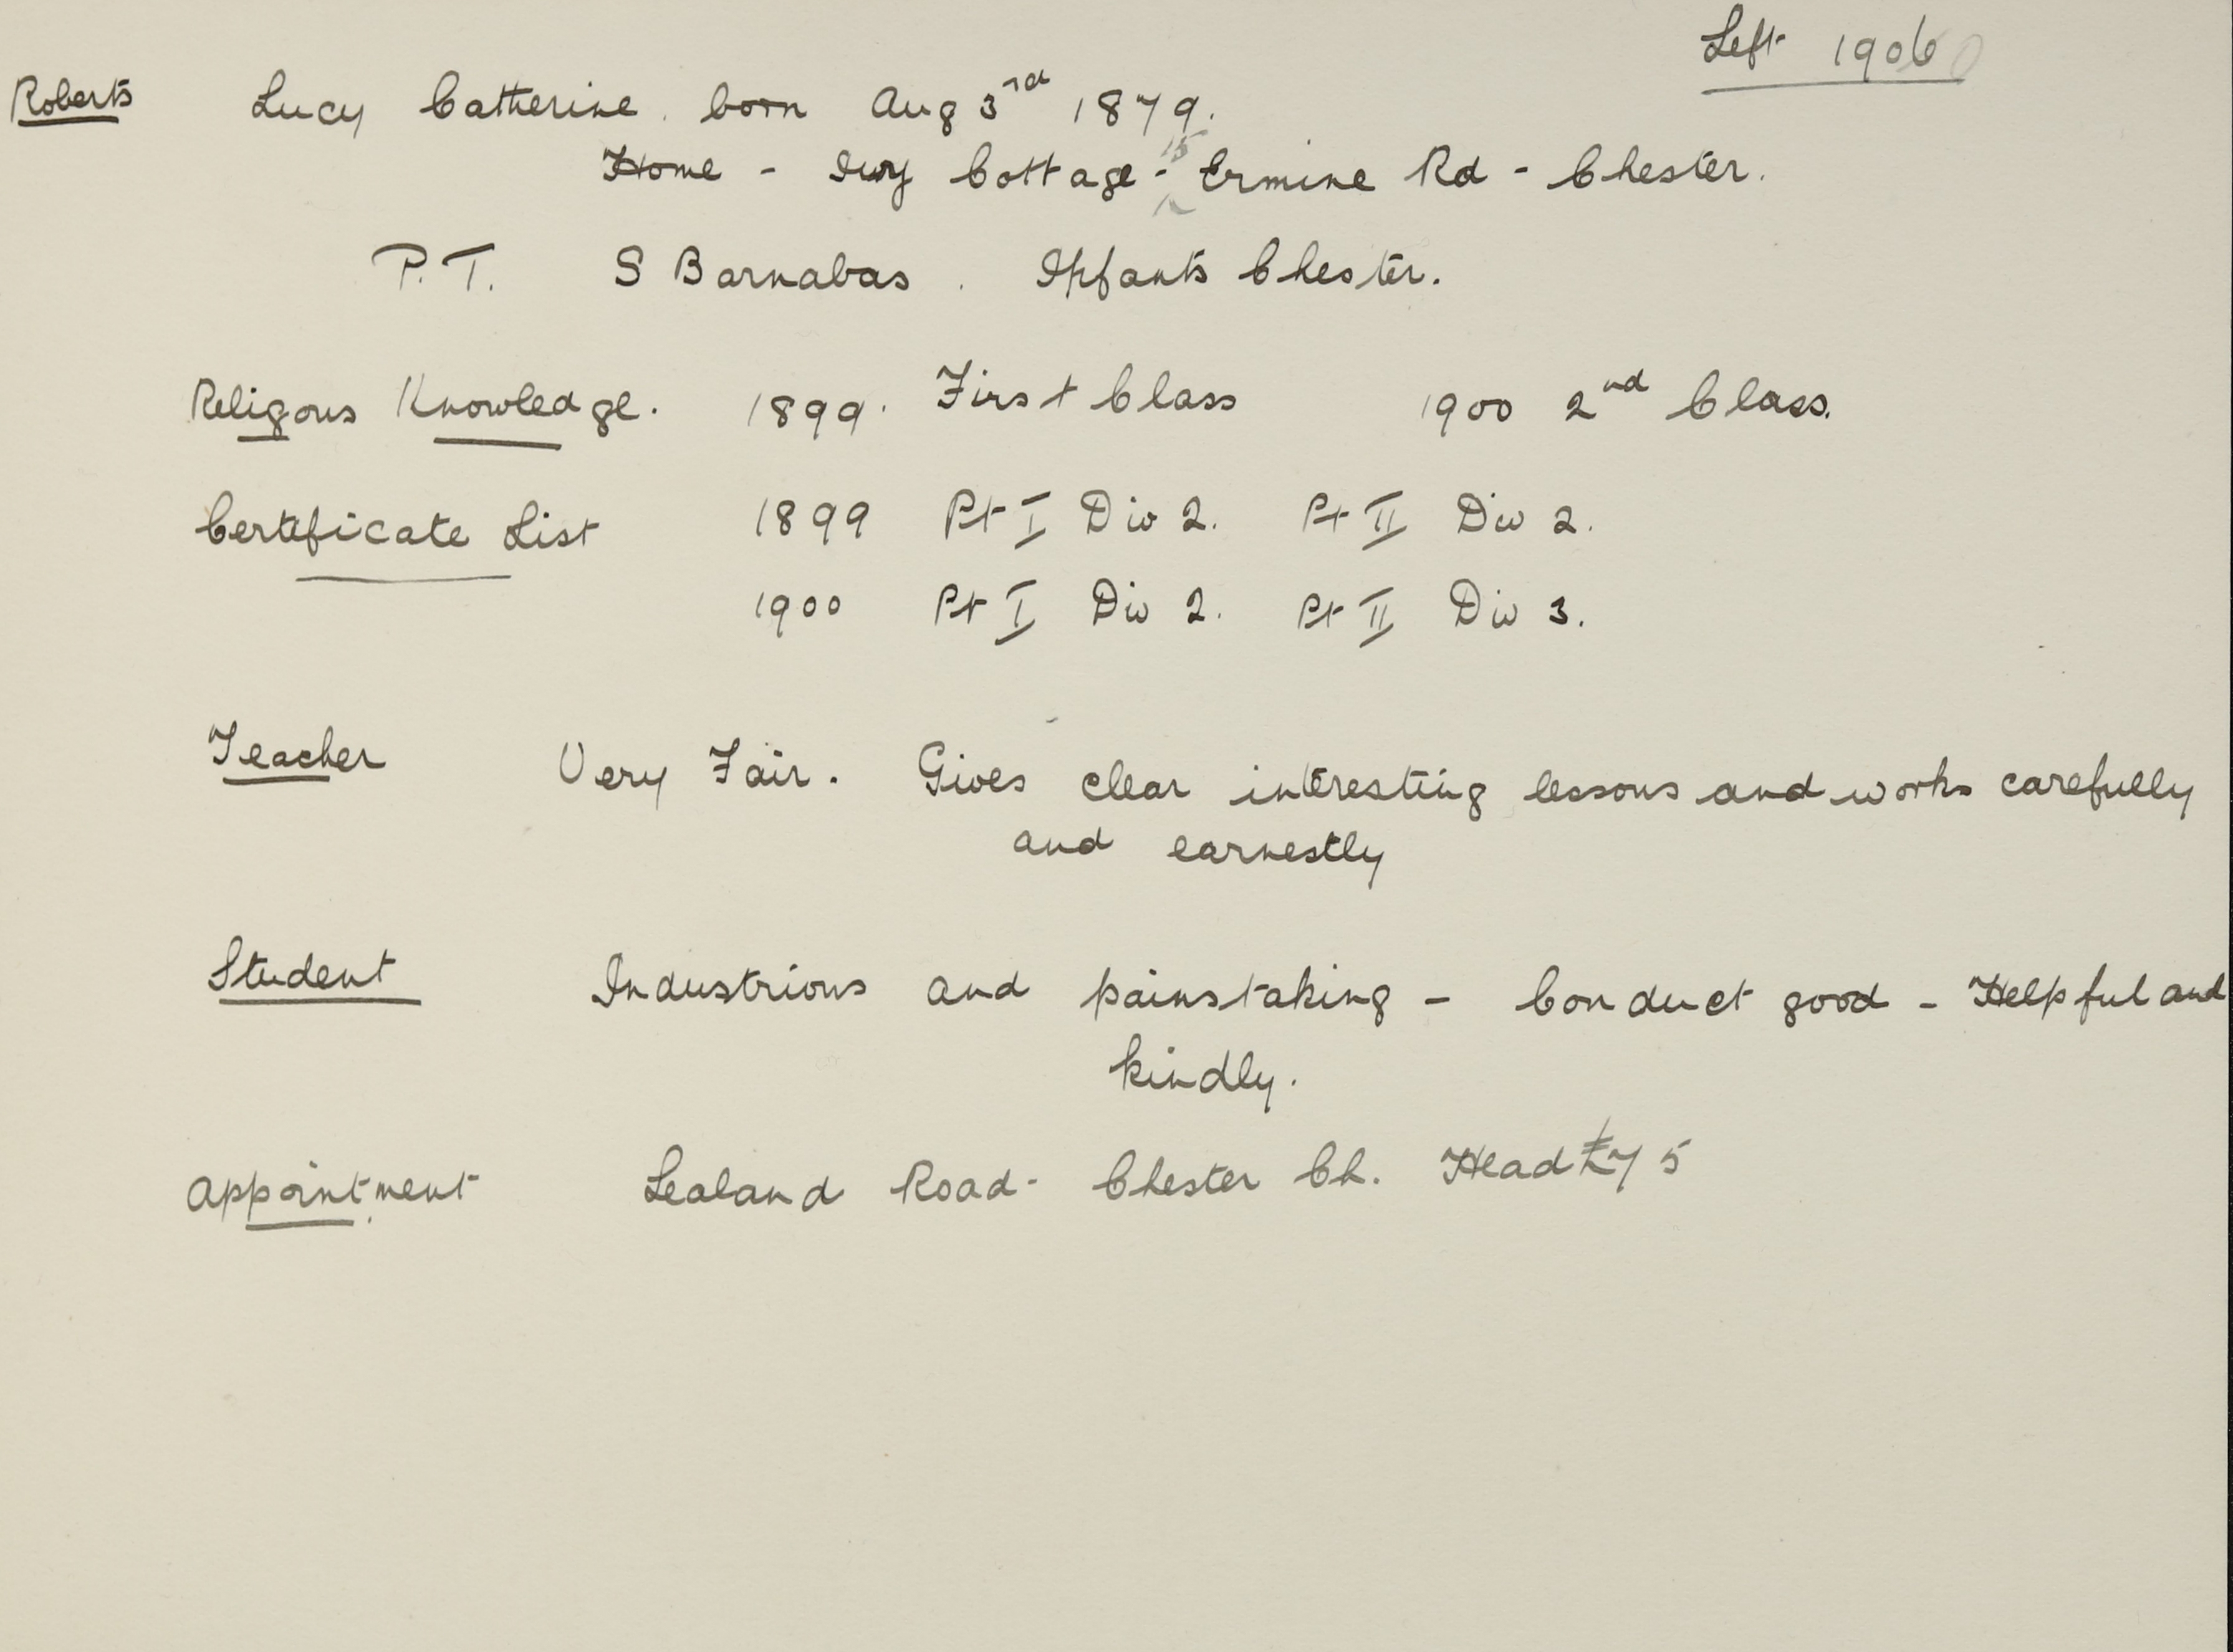 Left 1906
Roberts Lucy Catherine. born Aug 3rd 1879.
15
Home - Ivy Cottage - Ermine Rd - Chester.
P.T. S Barnabas. Infants Chester.
Religous Knowledge. 1899. First Class 1900 2nd Class.
Certificate List 1899 Pt I Div 2. Pt II Div 2.
1900 Pt I Div 2. Pt II Div 3.
Teacher Very Fair. Gives clear interesting lessons and works carefully
and earnestly
Student Industrious and painstaking - Conduct good - Helpful and
kindly.
Appointment Sealand Road - Chester Ch. Head £75